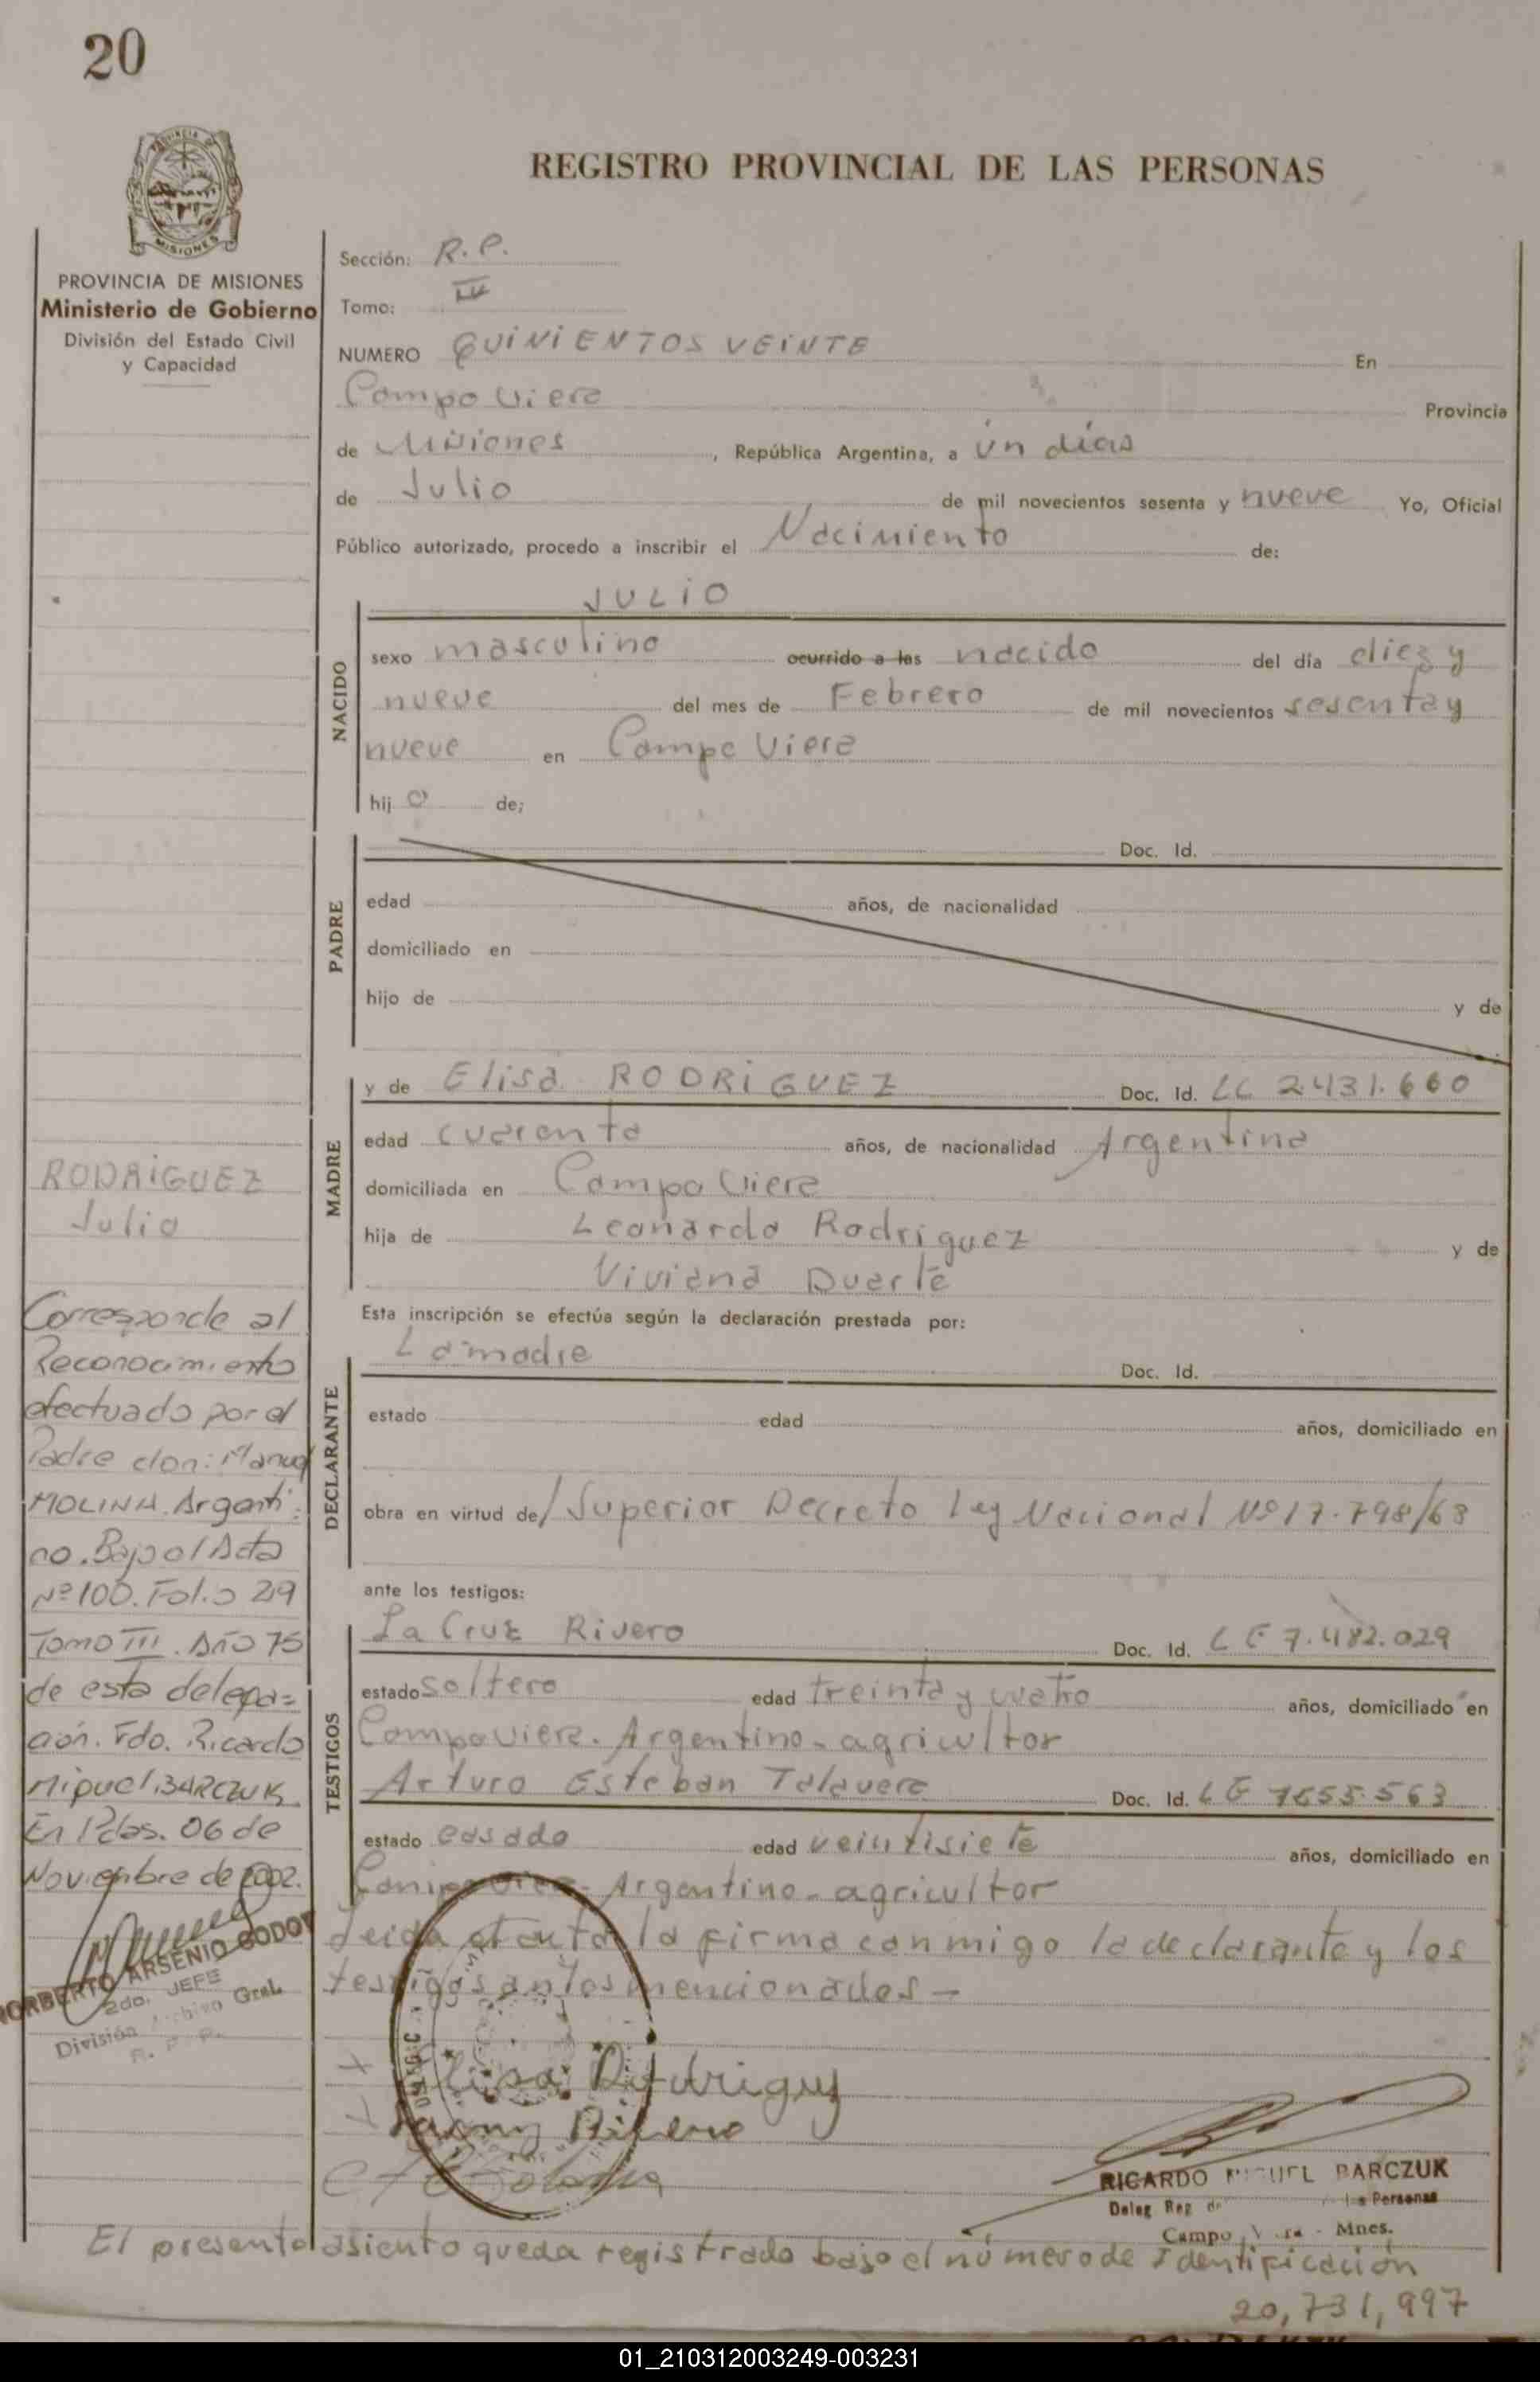 20
PROVINCIA DE
MISIONES
REGISTRO PROVINCIAL DE LAS PERSONAS
PROVINCIA DE MISIONES
Ministerio de Gobierno
División del Estado Civil
y Capacidad
Sección: R.P.
Tomo: IV
NUMERO QUINIENTOS VEINTE En
Campo Viera Provincia
de Misiones, República Argentina, a ún días
de Julio de mil novecientos sesenta y nueve Yo, Oficial
Público autorizado, procedo a inscribir el Nacimiento de:
NACIDO
JULIO
sexo masculino ocurrido a las nacido del día diez y
nueve del mes de Febrero de mil novecientos sesenta y
nueve en Campo Viera
hij o de;
PADRE
Doc. Id.
edad años, de nacionalidad
domiciliado en
hijo de y de
MADRE
y de Elisa RODRIGUEZ Doc. Id. LC 2.431.660
edad cuarenta años, de nacionalidad Argentina
domiciliada en Campo Viera
hija de Leonardo Rodriguez y de
Viviana Duarte
Esta inscripción se efectúa según la declaración prestada por:
DECLARANTE
La madre Doc. Id.
estado edad años, domiciliado en
obra en virtud de/ Superior Decreto Ley Nacional Nº 17.798/68
ante los testigos:
TESTIGOS
La Cruz Rivero Doc. Id. LE 7.482.029
estado soltero edad treinta y cuatro años, domiciliado en
Campo Viera. Argentino - agricultor
Arturo Esteban Talavera Doc. Id. LE 7655.563
estado casado edad veintisiete años, domiciliado en
Campo Viera - Argentino - agricultor
Leida el acta la firma conmigo la declarante y los
testigos antes mencionados -
Elisa Rodriguez
Rivero
RICARDO MIGUEL BARCZUK
Deleg Reg de las Personas
Campo Viera - Mnes.
El presente asiento queda registrado bajo el número de Identificación
20,731,997
RODRIGUEZ
Julio
Corresponde al
Reconocimiento
efectuado por el
Padre don: Manuel
MOLINA. Argenti=
no. Bajo el Acta
Nº 100. Folio 249
Tomo III. Año 75
de esta delega=
ción. Fdo. Ricardo
Miguel BARCZUK
En Pdas. 06 de
Noviembre de 2002.
NORBERTO ARSENIO GODOY
2do. JEFE
División Archivo Gral.
R. P. P.
01_210312003249-003231